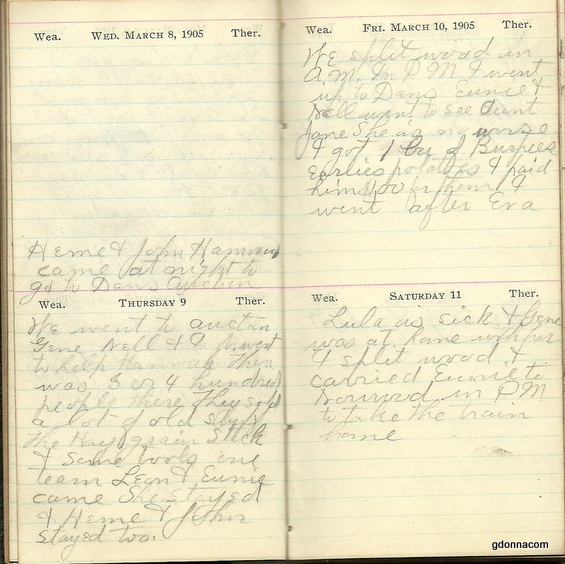 Wea. WED. MARCH 8, 1905 Ther.
Heme & John Hammon
came at night to
go to Dans Auction
THURSDAY 9
Wea. Ther.
We went to auction
Gene Nell & I went
to help Hannah there
was 3 or 4 hundred
people there they sold
a lot of old stuff
the Hay grain Stock
& Some tools one
team Leon & Eunie
came She stayed
& Heme & John
stayed too.
Wea. FRI. MARCH 10, 1905 Ther.
We split wood in
A.M. In P M I went
up to Dans Eunie &
Nell went to see Aunt
Jane She is no worse
I got 1 bu of Burpees
Earlies potatoes & paid
him for them &
went after Eva
Wea. SATURDAY 11 Ther.
Lula is sick & Gene
was at home with her
I split wood &
carried Eunie to
in PM
to take the train
home
gdonnacom